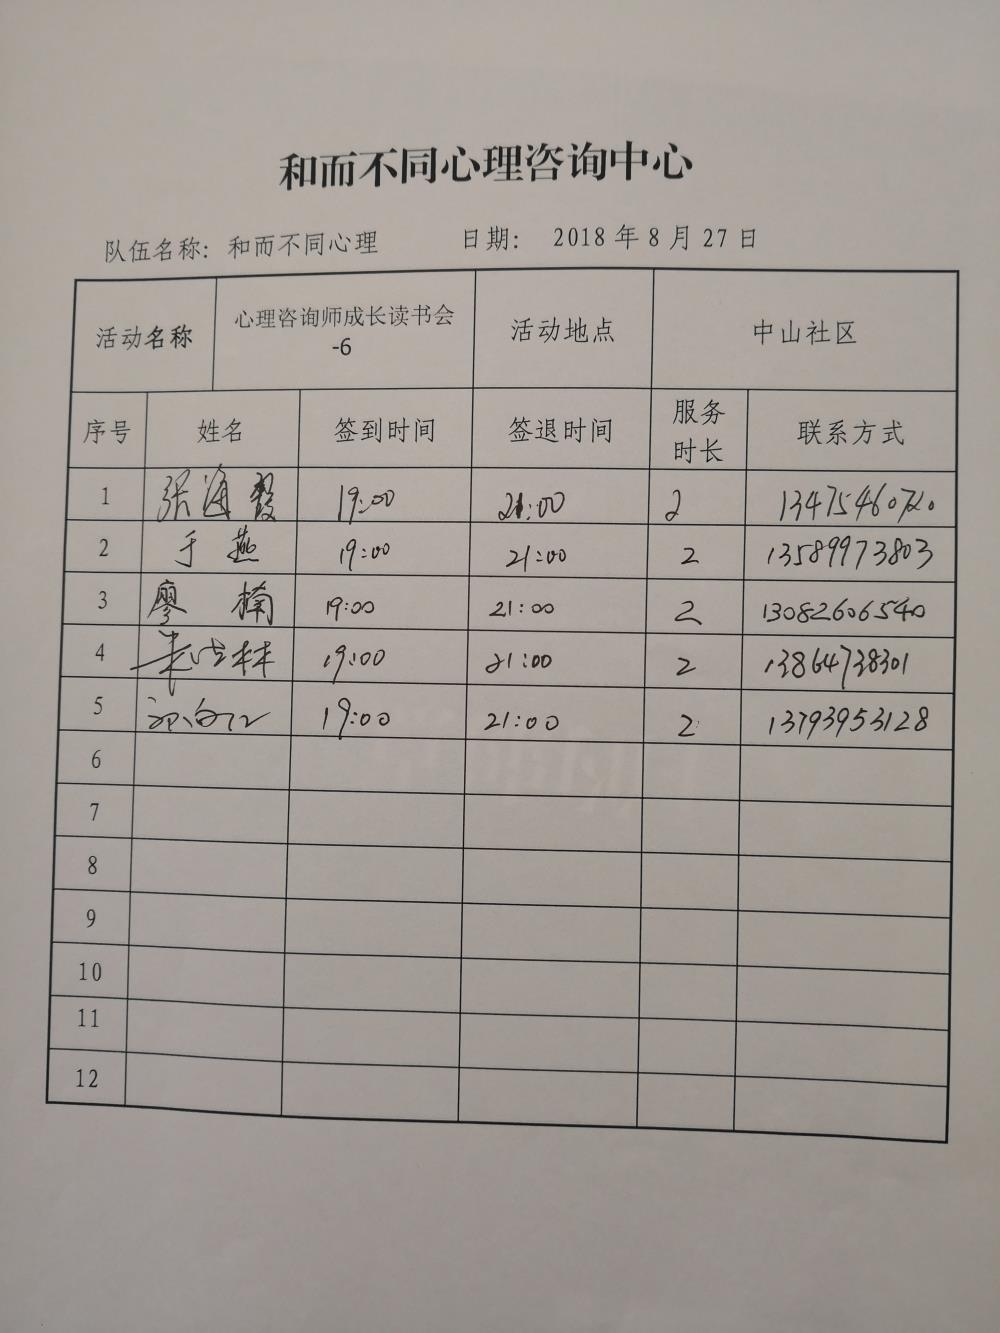 和而不同心理咨询中心
队伍名称: 和而不同心理 日期: 2018年8月27日
活动名称 心理咨询师成长读书会 活动地点 中山社区
-6
序号 姓名 签到时间 签退时间 服务时长 联系方式
1 张海霞 19:00 21:00 2
2 于燕 19:00 21:00 2 13589973803
3 廖楠 19:00 21:00 2 13082606540
4 19:00 21:00 2 13864738301
5 19:00 21:00 2 13793953128
6
7
8
9
10
11
12